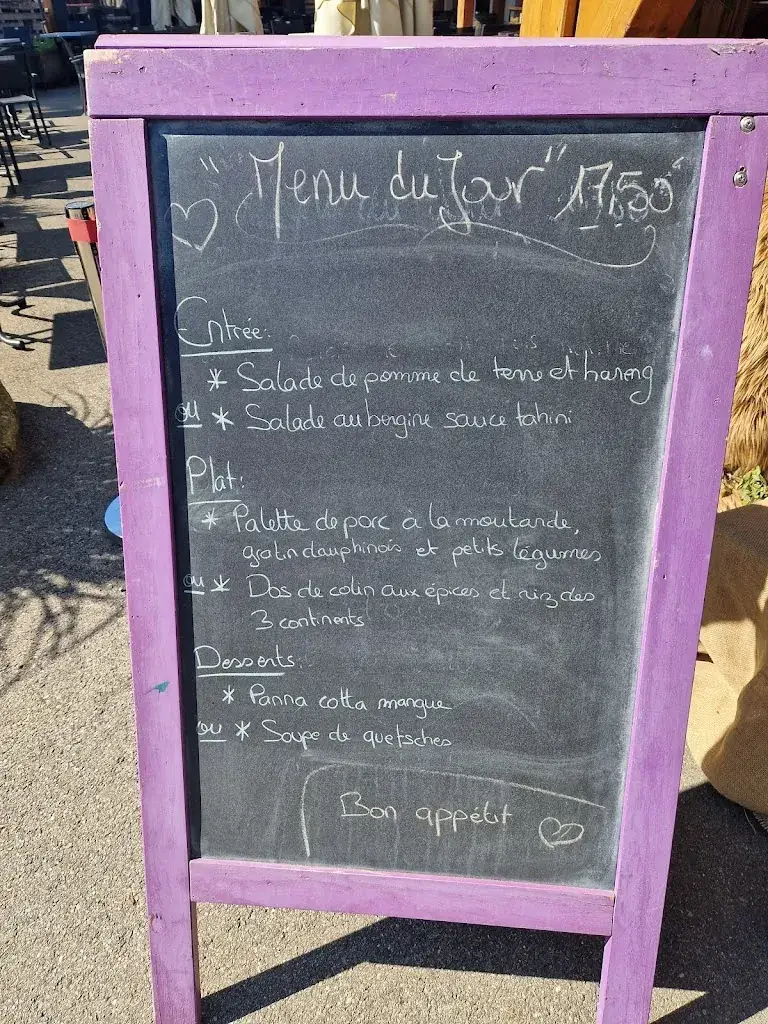 "Menu du Jour" 17,50€
Entrée:
* Salade de pomme de terre et hareng
ou * Salade aubergine sauce tahini
Plat:
* Palette de porc à la moutarde,
gratin dauphinois et petits légumes
ou * Dos de colin aux épices et riz des
3 continents
Desserts:
* Panna cotta mangue
ou * Soupe de quetsches
Bon appétit